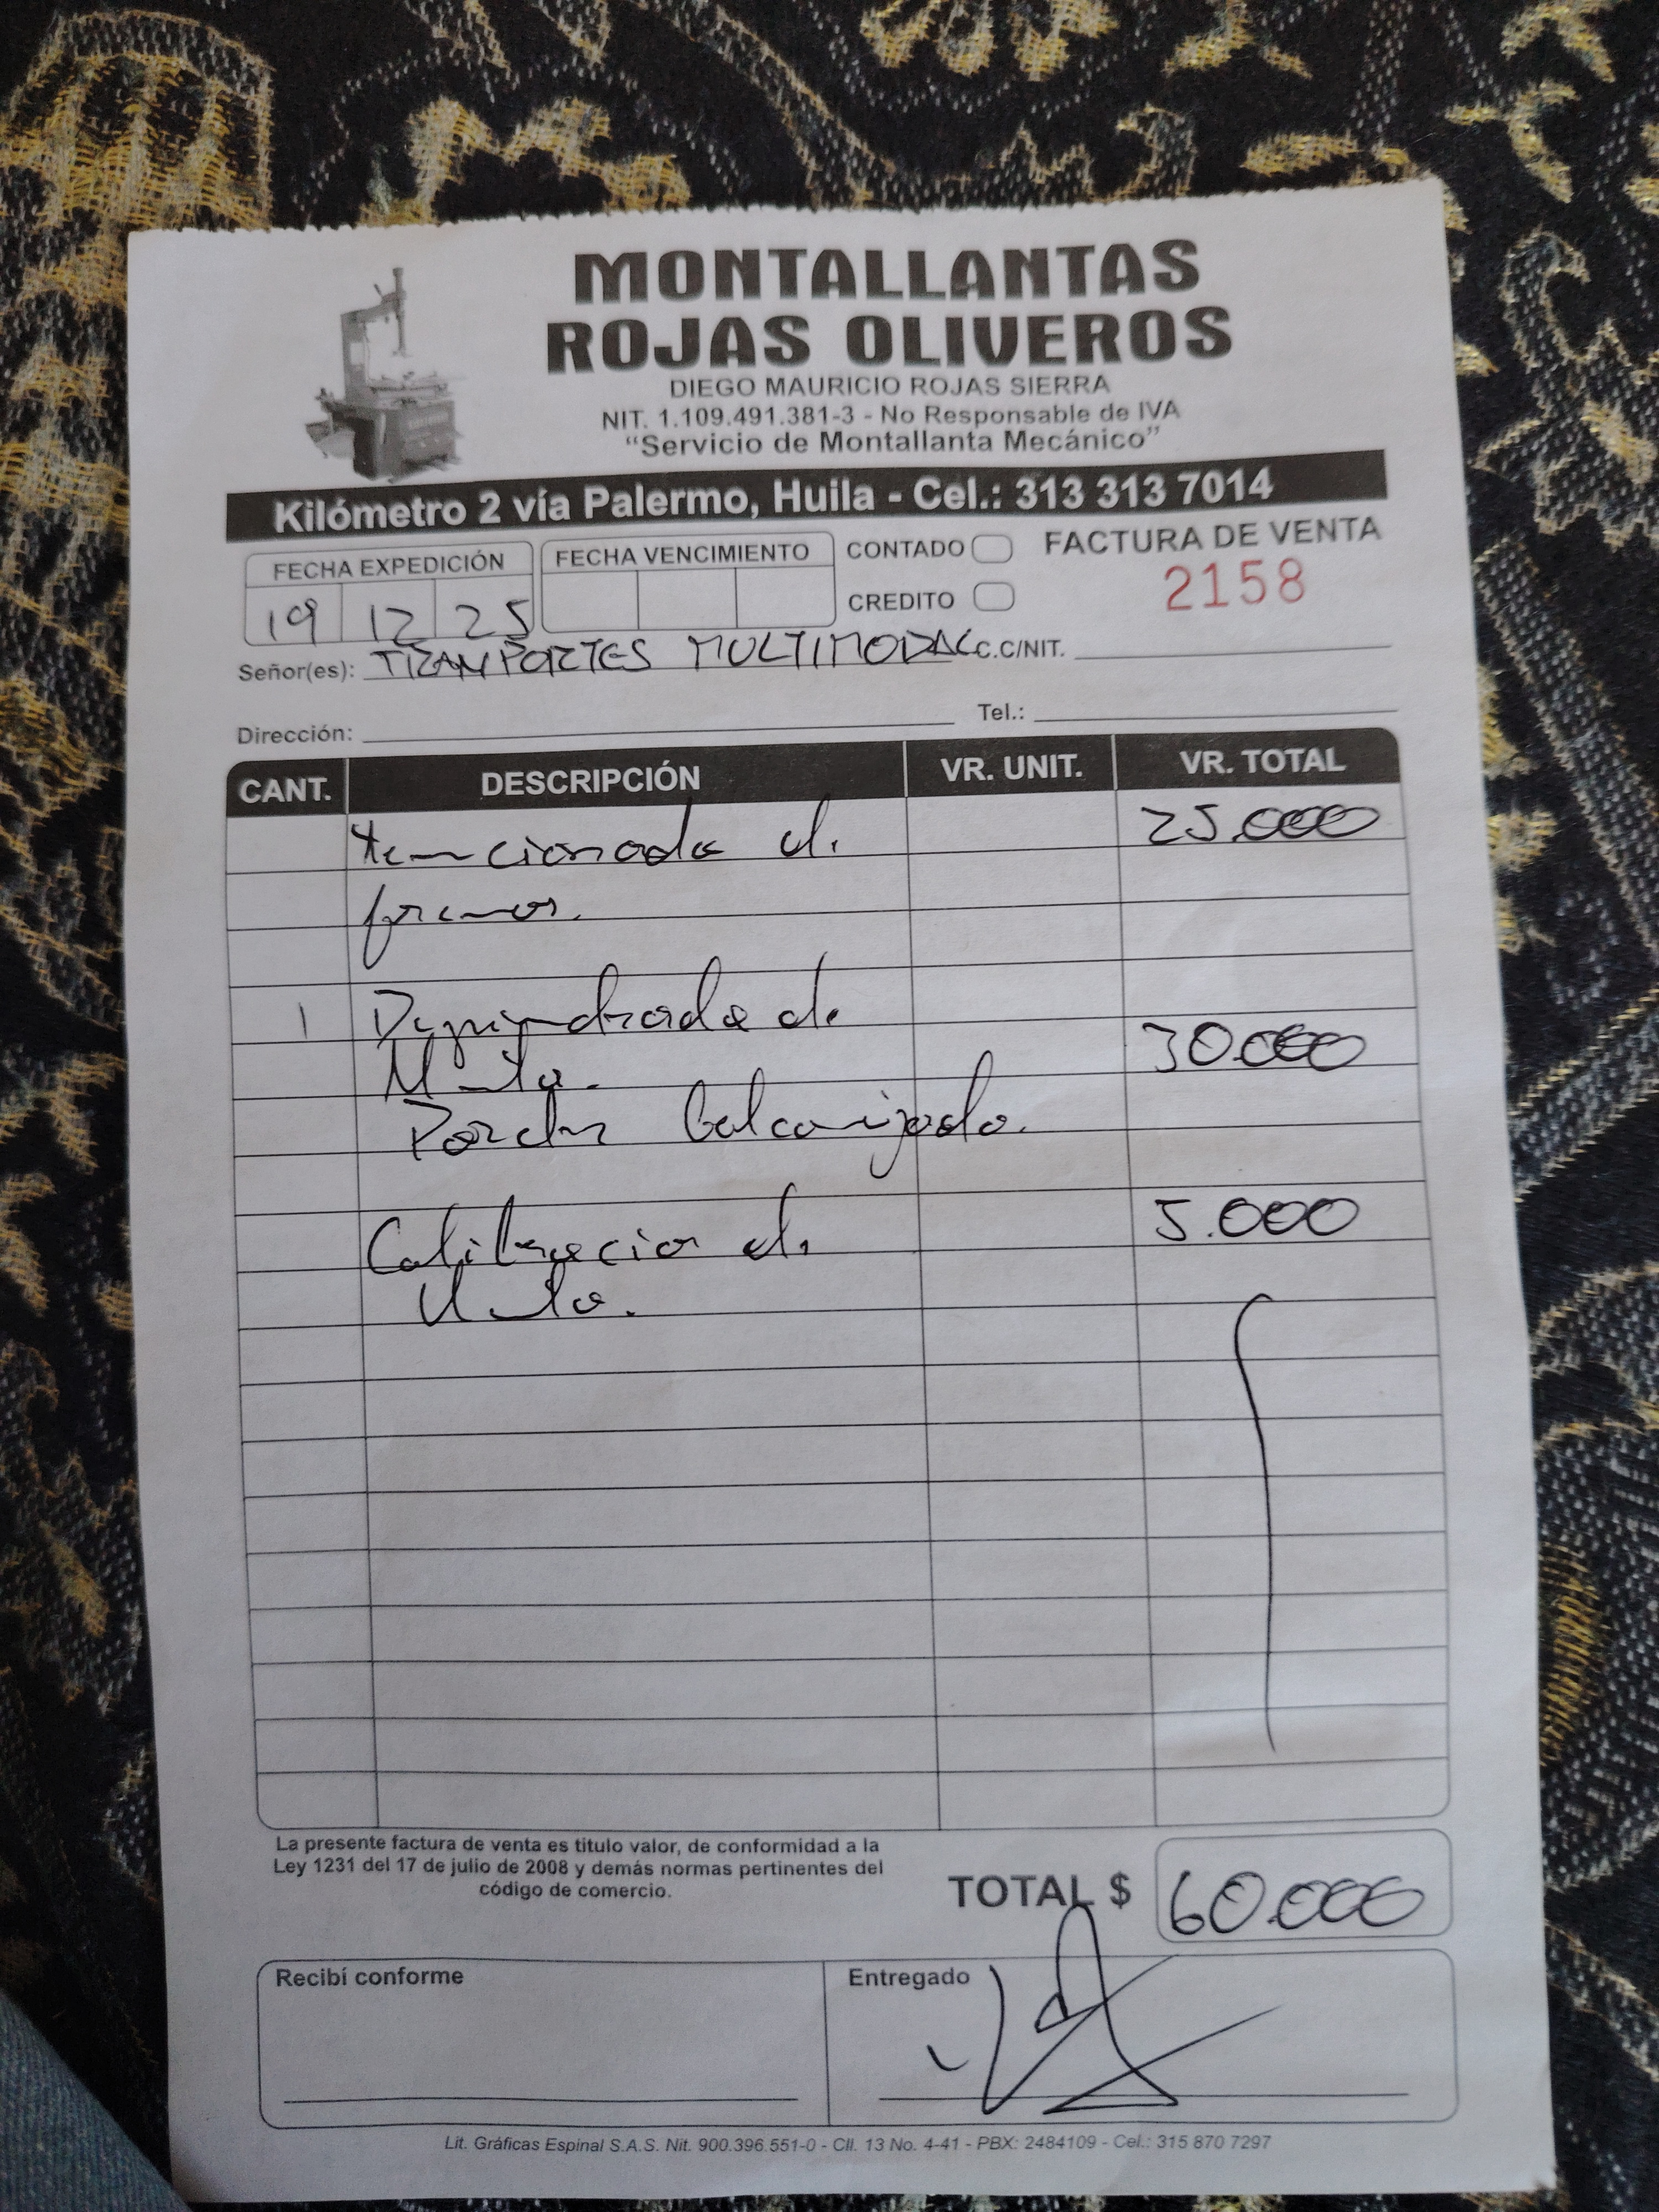 MONTALLANTAS
ROJAS OLIVEROS
DIEGO MAURICIO ROJAS SIERRA
NIT. 1.109.491.381-3 - No Responsable de IVA
“Servicio de Montallanta Mecánico”
Kilómetro 2 vía Palermo, Huila - Cel.: 313 313 7014
FECHA EXPEDICIÓN FECHA VENCIMIENTO CONTADO FACTURA DE VENTA
19 12 25 CREDITO 2158
Señor(es): TRANPORTES MULTIMODAL C.C/NIT.
Dirección: Tel.:
CANT. DESCRIPCIÓN VR. UNIT. VR. TOTAL
tencionada de 25.000
frenos.
1 de
30.000
Calibracion de 5.000
La presente factura de venta es titulo valor, de conformidad a la
Ley 1231 del 17 de julio de 2008 y demás normas pertinentes del
código de comercio.
TOTAL $ 60.000
Recibí conforme Entregado
Lit. Gráficas Espinal S.A.S. Nit. 900.396.551-0 - Cll. 13 No. 4-41 - PBX: 2484109 - Cel.: 315 870 7297